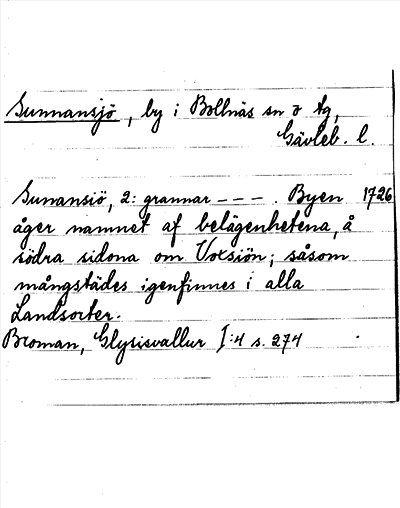 Sunnansjö, by i Bollnäs sn o tg,
Gävleb. l.
Sunansiö, 2: grannar --- . Byen 1726
äger namnet af belägenhetena, å
södra sidona om Voxsiön; såsom
mångstädes igenfinnes i alla
Landsorter.
Broman, Glysisvallur I:4 s. 274